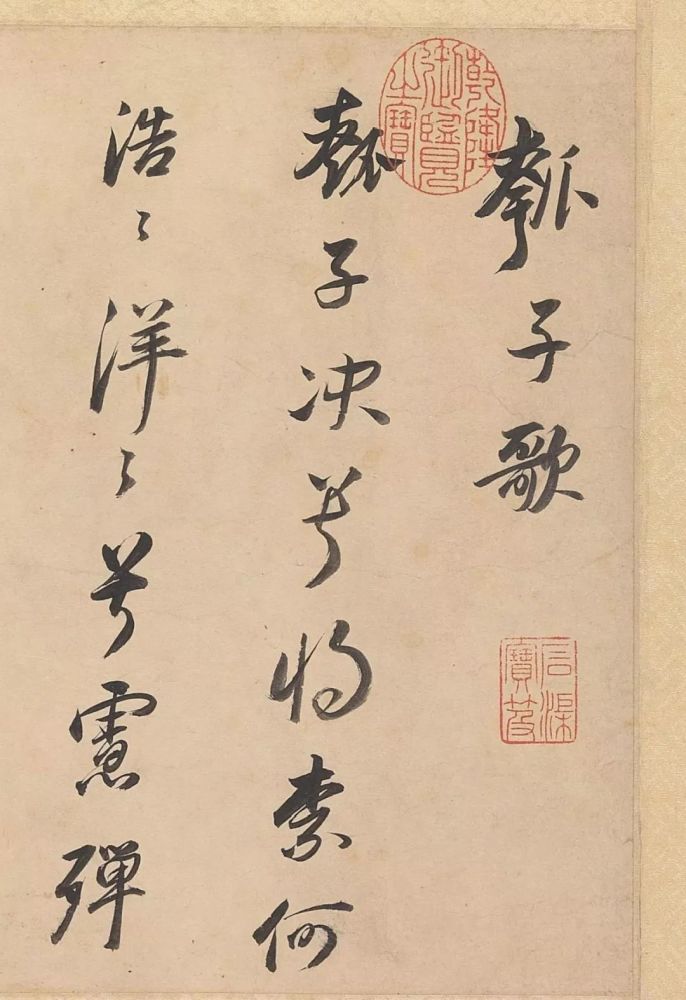 瓠子歌
瓠子决兮將柰何
浩〻洋〻兮慮殫
乾隆御覽之寶
石渠寶笈